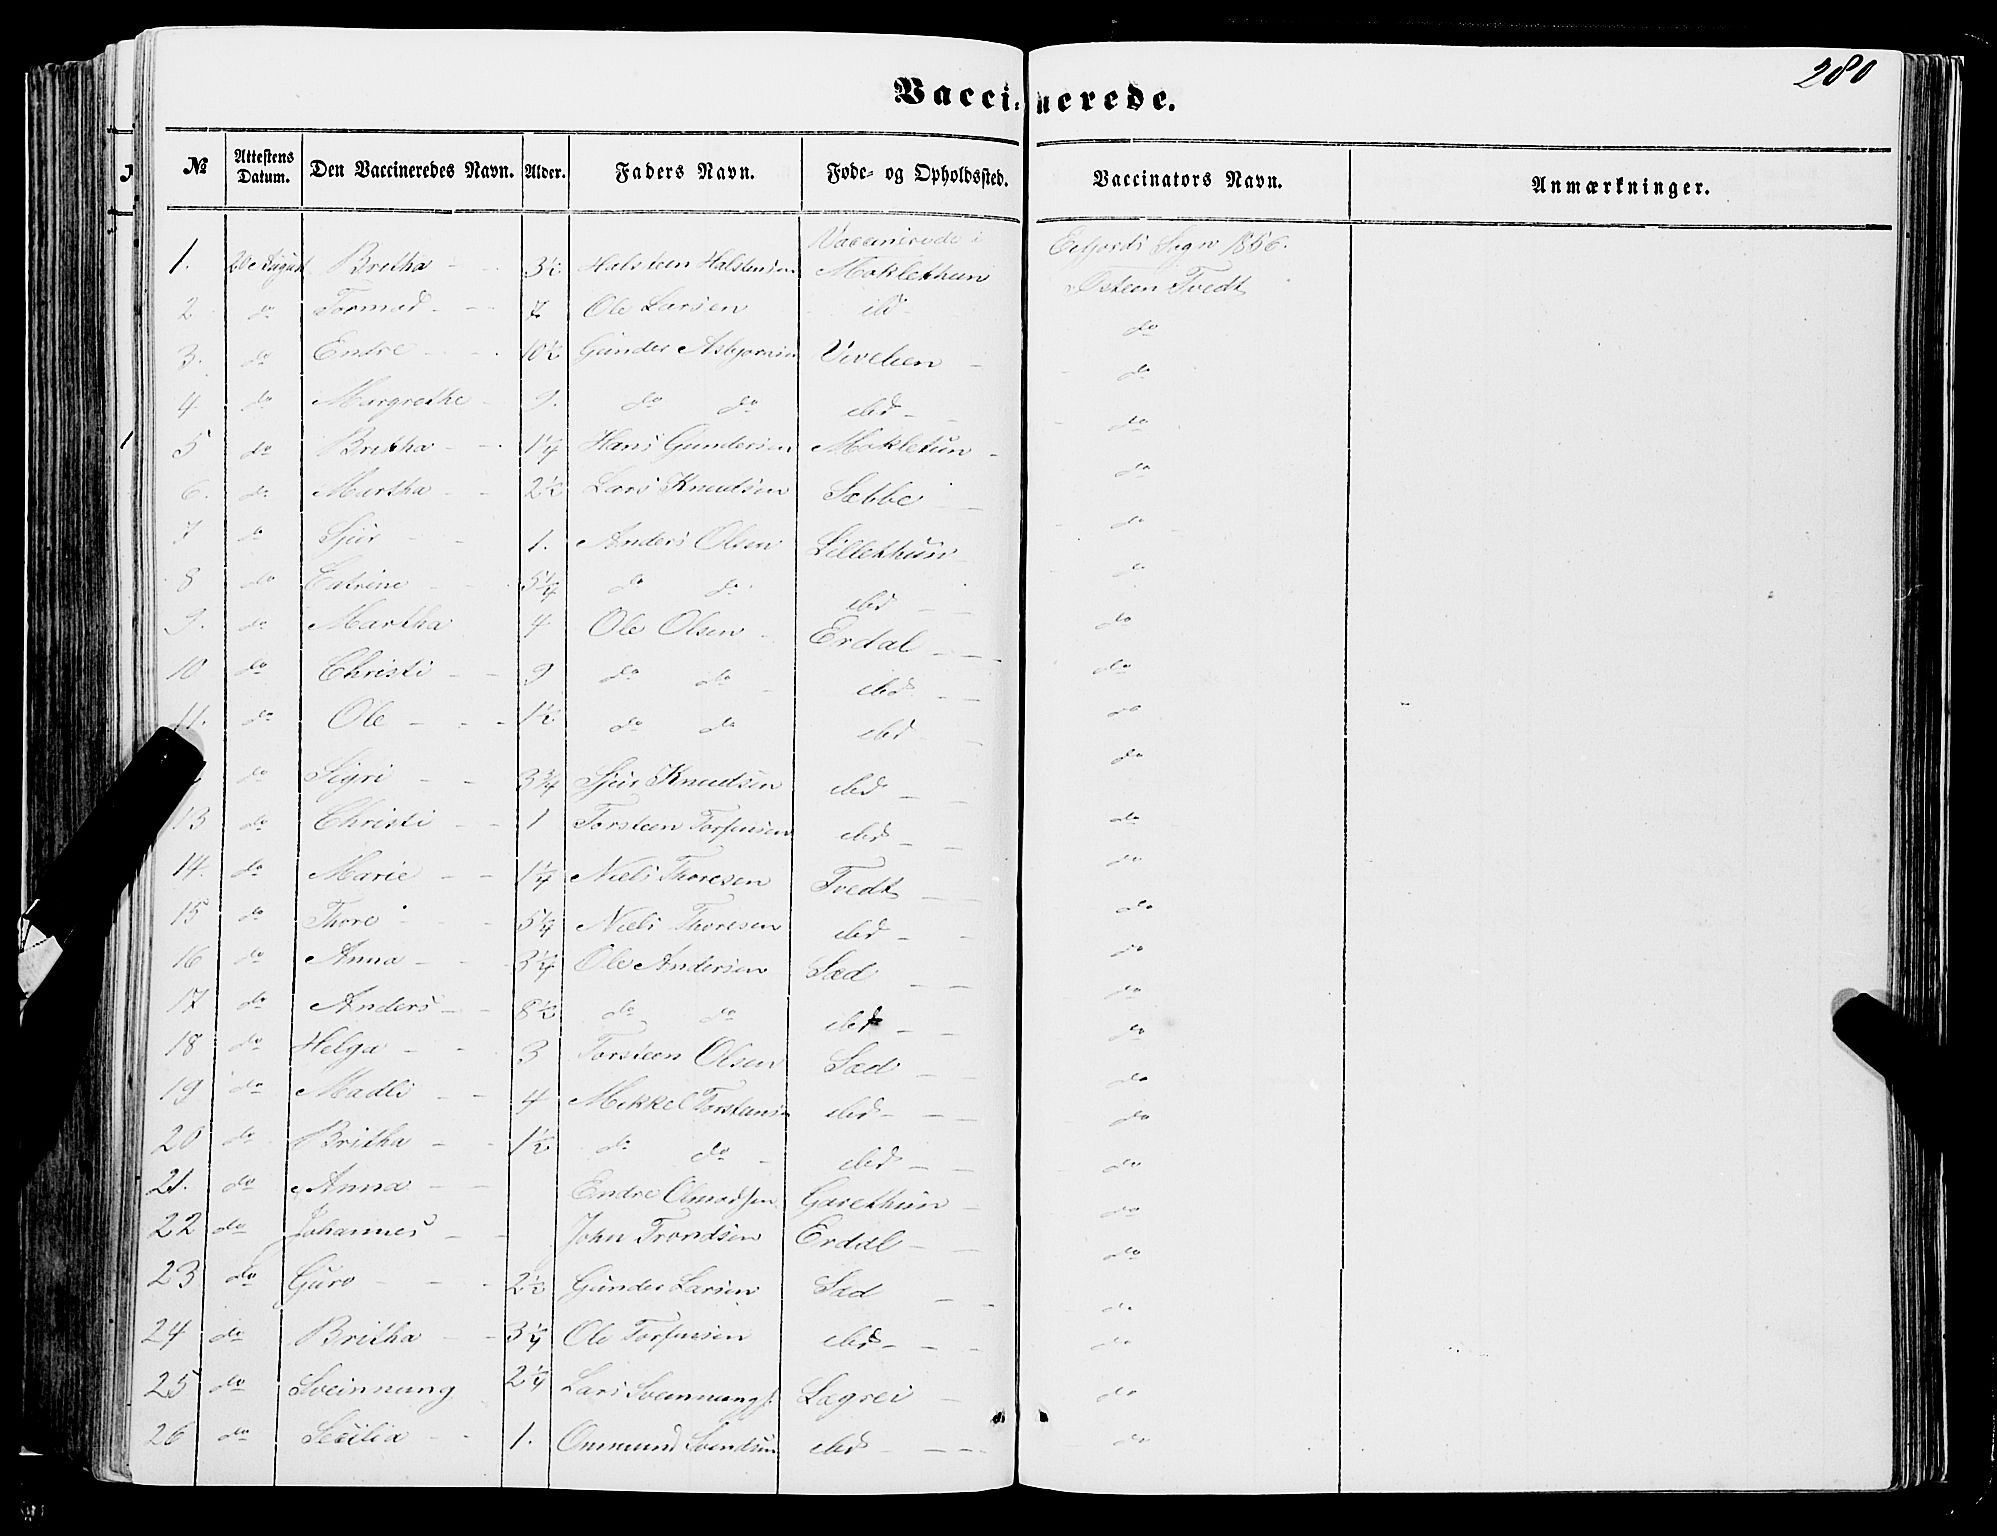 280
Vaccinerede.
№ Attestens Datum. Den Vaccineredes Navn. Alder. Faders Navn. Føde- og Opholdssted. Vaccinators Navn. Anmærkninger.
Vaccinerede i Eefjords Sogn 1856.
1. 20e August Britha 3½ Halsteen Halstensen Maklethun Østeen Tvedt
2 do Tormod 7 Ole Larsen ibd do
3. do Endre 10½ Gunder Asbjørnsen Vivelien do
4 do Margrethe 9. do do ibd do
5 do Britha 1¼ Hans Gundersen Mokletun do
6. do Martha 2½ Lars Knudsen Sæbbe do
7 do Sjur 1. Anders Olsen Lillethun do
8 do Catrine 5¼ do do ibd do
9. do Martha 4 Ole Olsen Erdal do
10 do Christi 9 do do ibd do
11. do Ole 1½ do do ibd do
do Sigri 3¾ Sjur Knudsen ibd do
13 do Christi 1 Torsteen Torfinsen ibd do
14. do Marie 1¼ Niels Thoresen Tvedt do
15 do Thore 5¼ Niels Thoresen ibd do
16 do Anna 3¼ Ole Andersen Sæd do
17 do Anders 8½ do do ibd do
18 do Helga 3 Torsteen Olsen Sæd do
19 do Madli 4 Mikkel Torstens ibd do
20 do Britha 1½ do do ibd do
21. do Anna Endre Garethun do
22 do Johannes John Trondsen Erdal do
23 do Guro 2½ Gunder Larsen Sæd do
24 do Britha 3¼ Ole Torfinsen ibd do
25 do Sveinnung 2¼ Lars Sveinnungs. Lægrei do
26 do Secilia 1. Ommund Svendsen ibd do